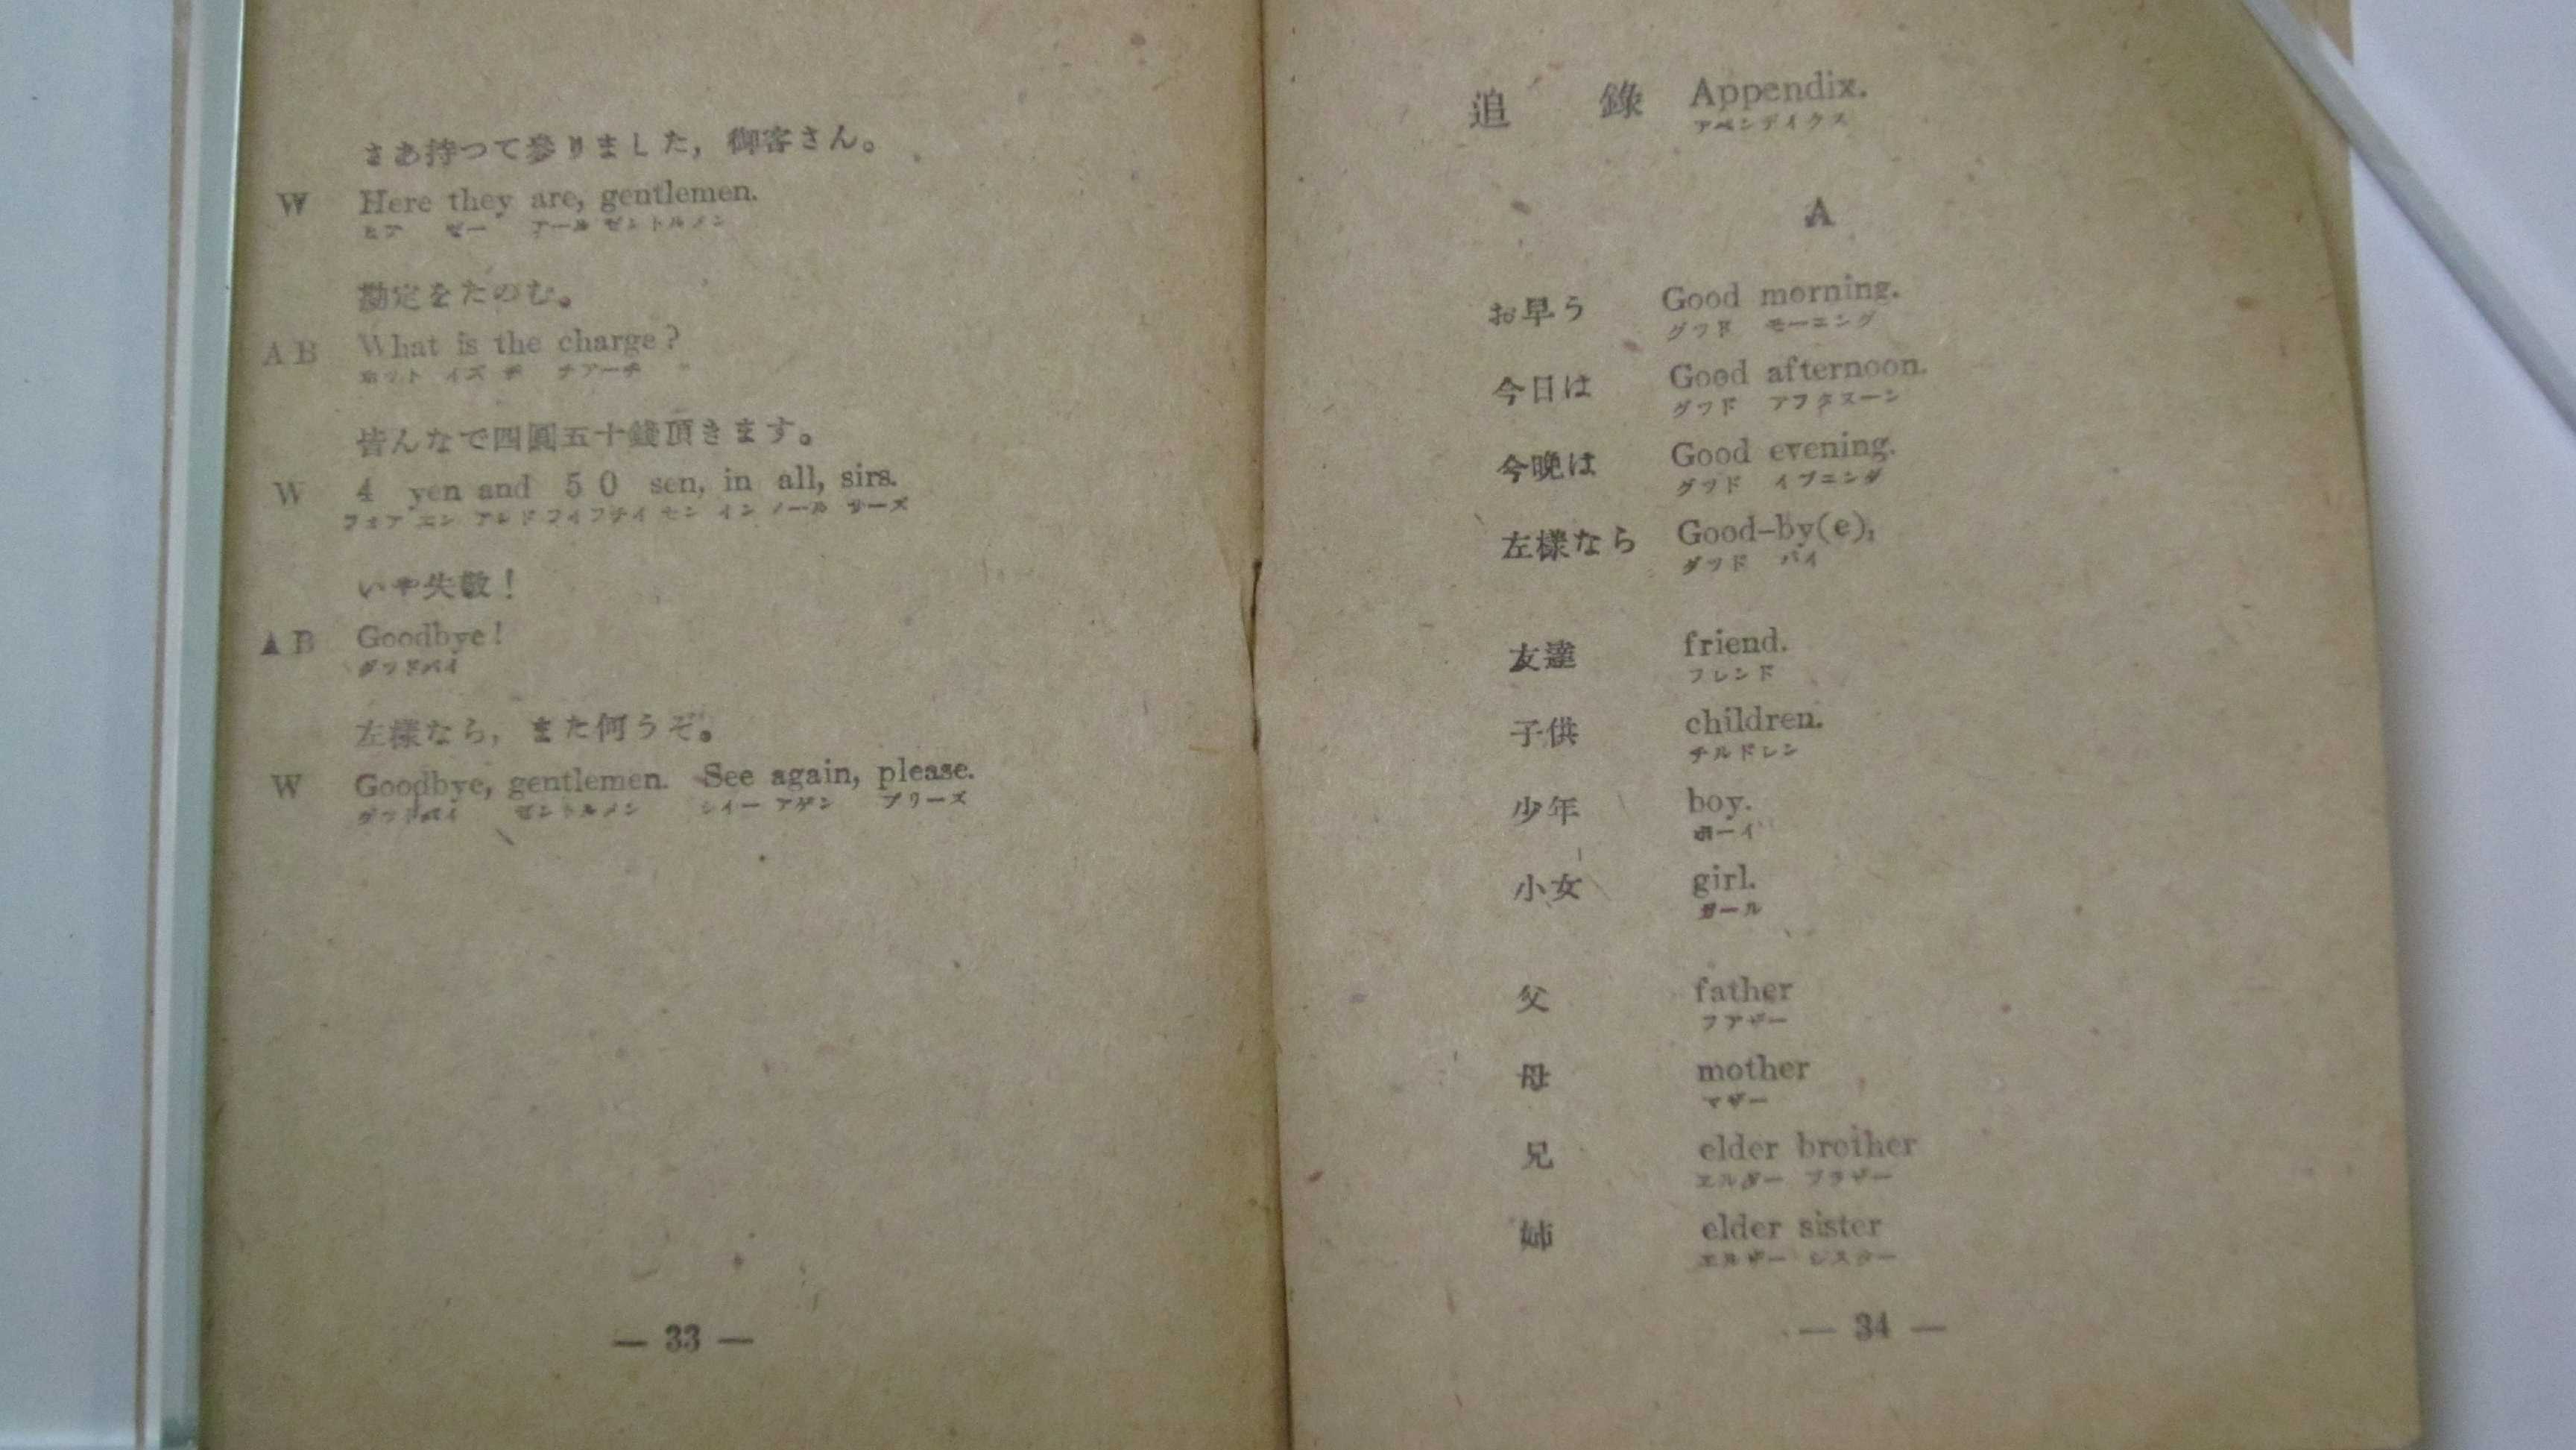 さあ持つて參りました，御客さん。
W Here they are, gentlemen.
ヒア ゼー アール ゼントルメン
勘定をたのむ。
A B What is the charge?
ホット イズ チ チアーヂ
皆んなで四圓五十錢頂きます。
W 4 yen and 50 sen, in all, sirs.
フォア エン アンド フイフテイ セン イン ノール サーズ
いや失敬！
A B Goodbye!
グッドバイ
左樣なら，また何うぞ。
W Goodbye, gentlemen. See again, please.
グッドバイ ゼントルメン シイー アゲン プリーズ
— 33 —
追錄 Appendix.
アペンデイクス
A
お早う Good morning.
グッド モーニング
今日は Good afternoon.
グッド アフタヌーン
今晩は Good evening.
グッド イブニング
左樣なら Good-by(e),
グッド バイ
友達 friend.
フレンド
子供 children.
チルドレン
少年 boy.
ボーイ
小女 girl.
ガール
父 father
フアザー
母 mother
マザー
兄 elder brother
エルダー ブラザー
姉 elder sister
エルダー シスター
— 34 —